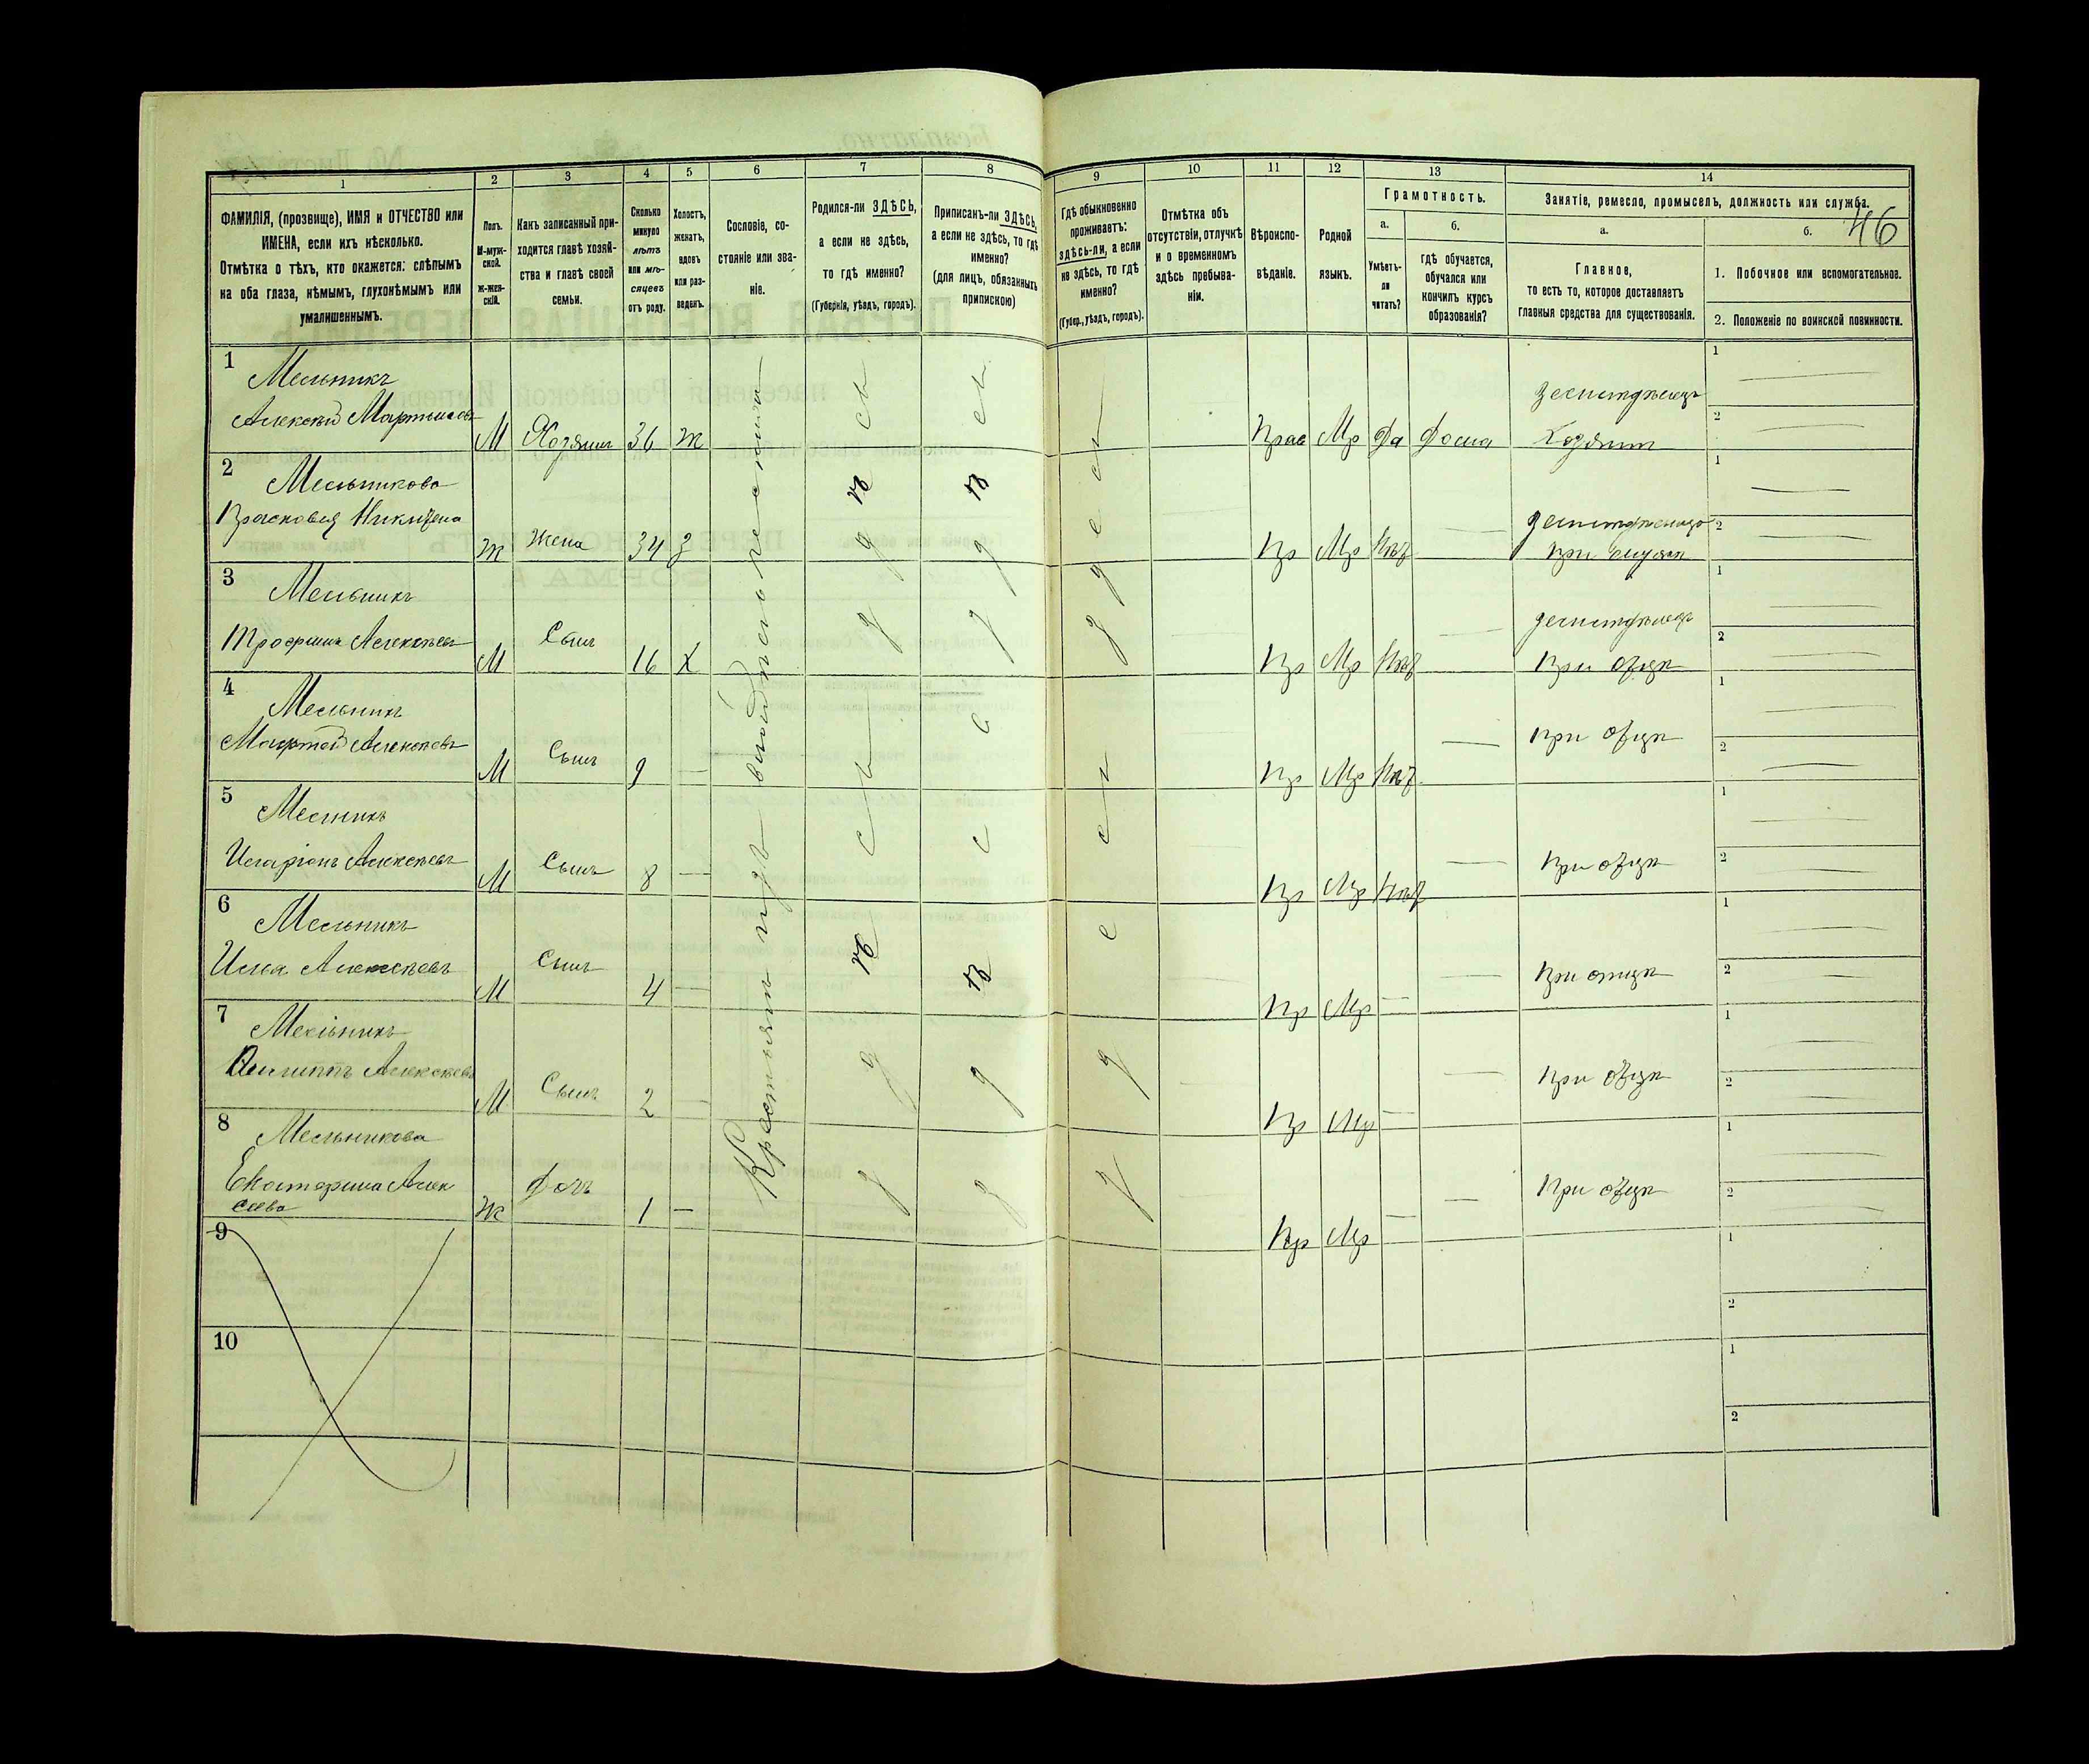 46
1 2 3 4 5 6 7 8 9 10 11 12 13 14
ФАМИЛІЯ, (прозвище), ИМЯ и ОТЧЕСТВО или
ИМЕНА, если ихъ нѣсколько.
Отмѣтка о тѣхъ, кто окажется: слѣпымъ
на оба глаза, нѣмымъ, глухонѣмымъ или
умалишеннымъ.
Полъ.
М-муж-
ской.
Ж-жен-
скій.
Какъ записанный при-
ходится главѣ хозяй-
ства и главѣ своей
семьи.
Сколько
минуло
лѣтъ
или мѣ-
сяцевъ
отъ роду.
Холостъ,
женатъ,
вдовъ
или раз-
веденъ.
Сословіе, со-
стояніе или зва-
ніе.
Родился-ли ЗДѢСЬ,
а если не здѣсь,
то гдѣ именно?
(Губернія, уѣздъ, городъ).
Приписанъ-ли ЗДѢСЬ,
а если не здѣсь, то гдѣ
именно?
(для лицъ, обязанныхъ
припискою)
Гдѣ обыкновенно
проживаетъ:
здѣсь-ли, а если
не здѣсь, то гдѣ
именно?
(Губер., уѣздъ, городъ).
Отмѣтка объ
отсутствіи, отлучкѣ
и о временномъ
здѣсь пребыва-
ніи.
Вѣроиспо-
вѣданіе.
Родной
языкъ.
Грамотность.
а.
Умѣетъ-
ли
читать?
б.
гдѣ обучается,
обучался или
кончилъ курсъ
образованія?
Занятіе, ремесло, промыселъ, должность или служба.
а.
Главное,
то есть то, которое доставляетъ
главныя средства для существованія.
б.
1. Побочное или вспомогательное.
2. Положеніе по воинской повинности.
1
Мельникъ
Алексѣй М Хозяинъ 36 ж Прав Мр Да Дома Хозяинъ
2
Мельникова
Ж Жена 34 З Пр Мр Нѣт при
3
Мельникъ
Трофимъ Алексѣевъ М Сынъ 16 Х Пр Мр Нѣт при отцѣ
4
Мельникъ
Алексѣевъ М Сынъ 9 — Пр Мр Нѣт — при отцѣ
5
Мельникъ
Иларіонъ Алексѣевъ М Сынъ 8 — Пр Мр Нѣт — при отцѣ
6
Мельникъ
Илья Алексѣевъ М Сынъ 4 — Пр Мр — — при отцѣ
7
Мельникъ
Филиппъ Алексѣевъ М Сынъ 2 — Пр Мр — — при отцѣ
8
Мельникова
Екатерина Алек
сѣева Ж Дочь 1 — Пр Мр — — при отцѣ
9
10
Крестьян изъ
здѣсь
здѣсь
здѣсь
здѣсь
здѣсь